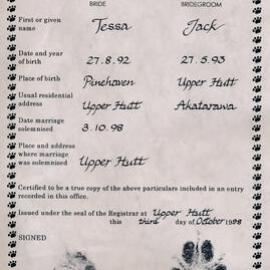 BRIDE BRIDEGROOM
First or given
name Tessa Jack
Date and year
of birth 27.8.92 27.5.93
Place of birth Pinehaven Upper Hutt
Usual residential
address Upper Hutt Akatarawa
Date marriage
solemnised 3.10.98
Place and address
where marriage
was solemnised Upper Hutt
Certified to be a true copy of the above particulars included in an entry
recorded in this office.
Issued under the seal of the Registrar at Upper Hutt
this third day of October 1998
SIGNED